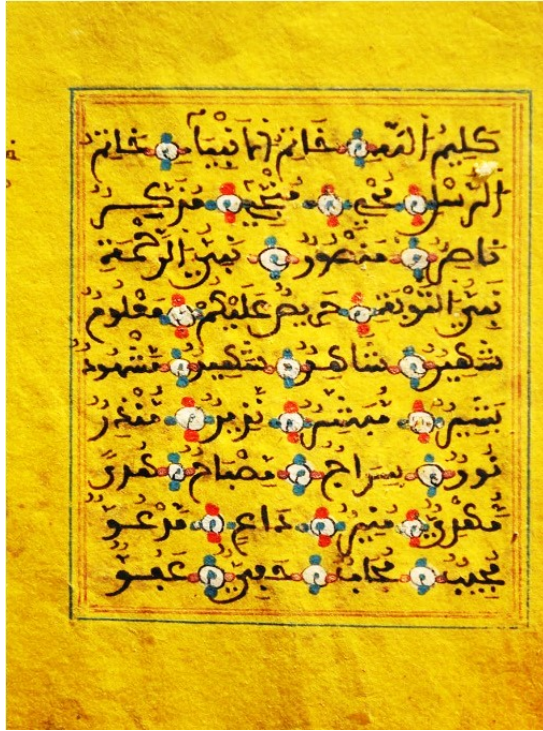 كَلِيمُ اللَّهِ خَاتِمُ الأَنْبِيَاءِ خَاتِمُ
الرُّسُلِ مُحْيٍ مُنَجٍّ مُذَكِّرٌ
نَاصِرٌ مَنْصُورٌ نَبِيُّ الرَّحْمَةِ
نَبِيُّ التَّوْبَةِ حَرِيصٌ عَلَيْكُمْ مَعْلُومٌ
شَهِيرٌ شَاهِدٌ شَهِيدٌ مَشْهُودٌ
بَشِيرٌ مُبَشِّرٌ نَذِيرٌ مُنْذِرٌ
نُورٌ سِرَاجٌ مِصْبَاحٌ هُدًى
مَهْدِيٌّ مُنِيرٌ دَاعٍ مَدْعُوٌّ
مُجِيبٌ مُجَابٌ حَفِيٌّ عَفُوٌّ